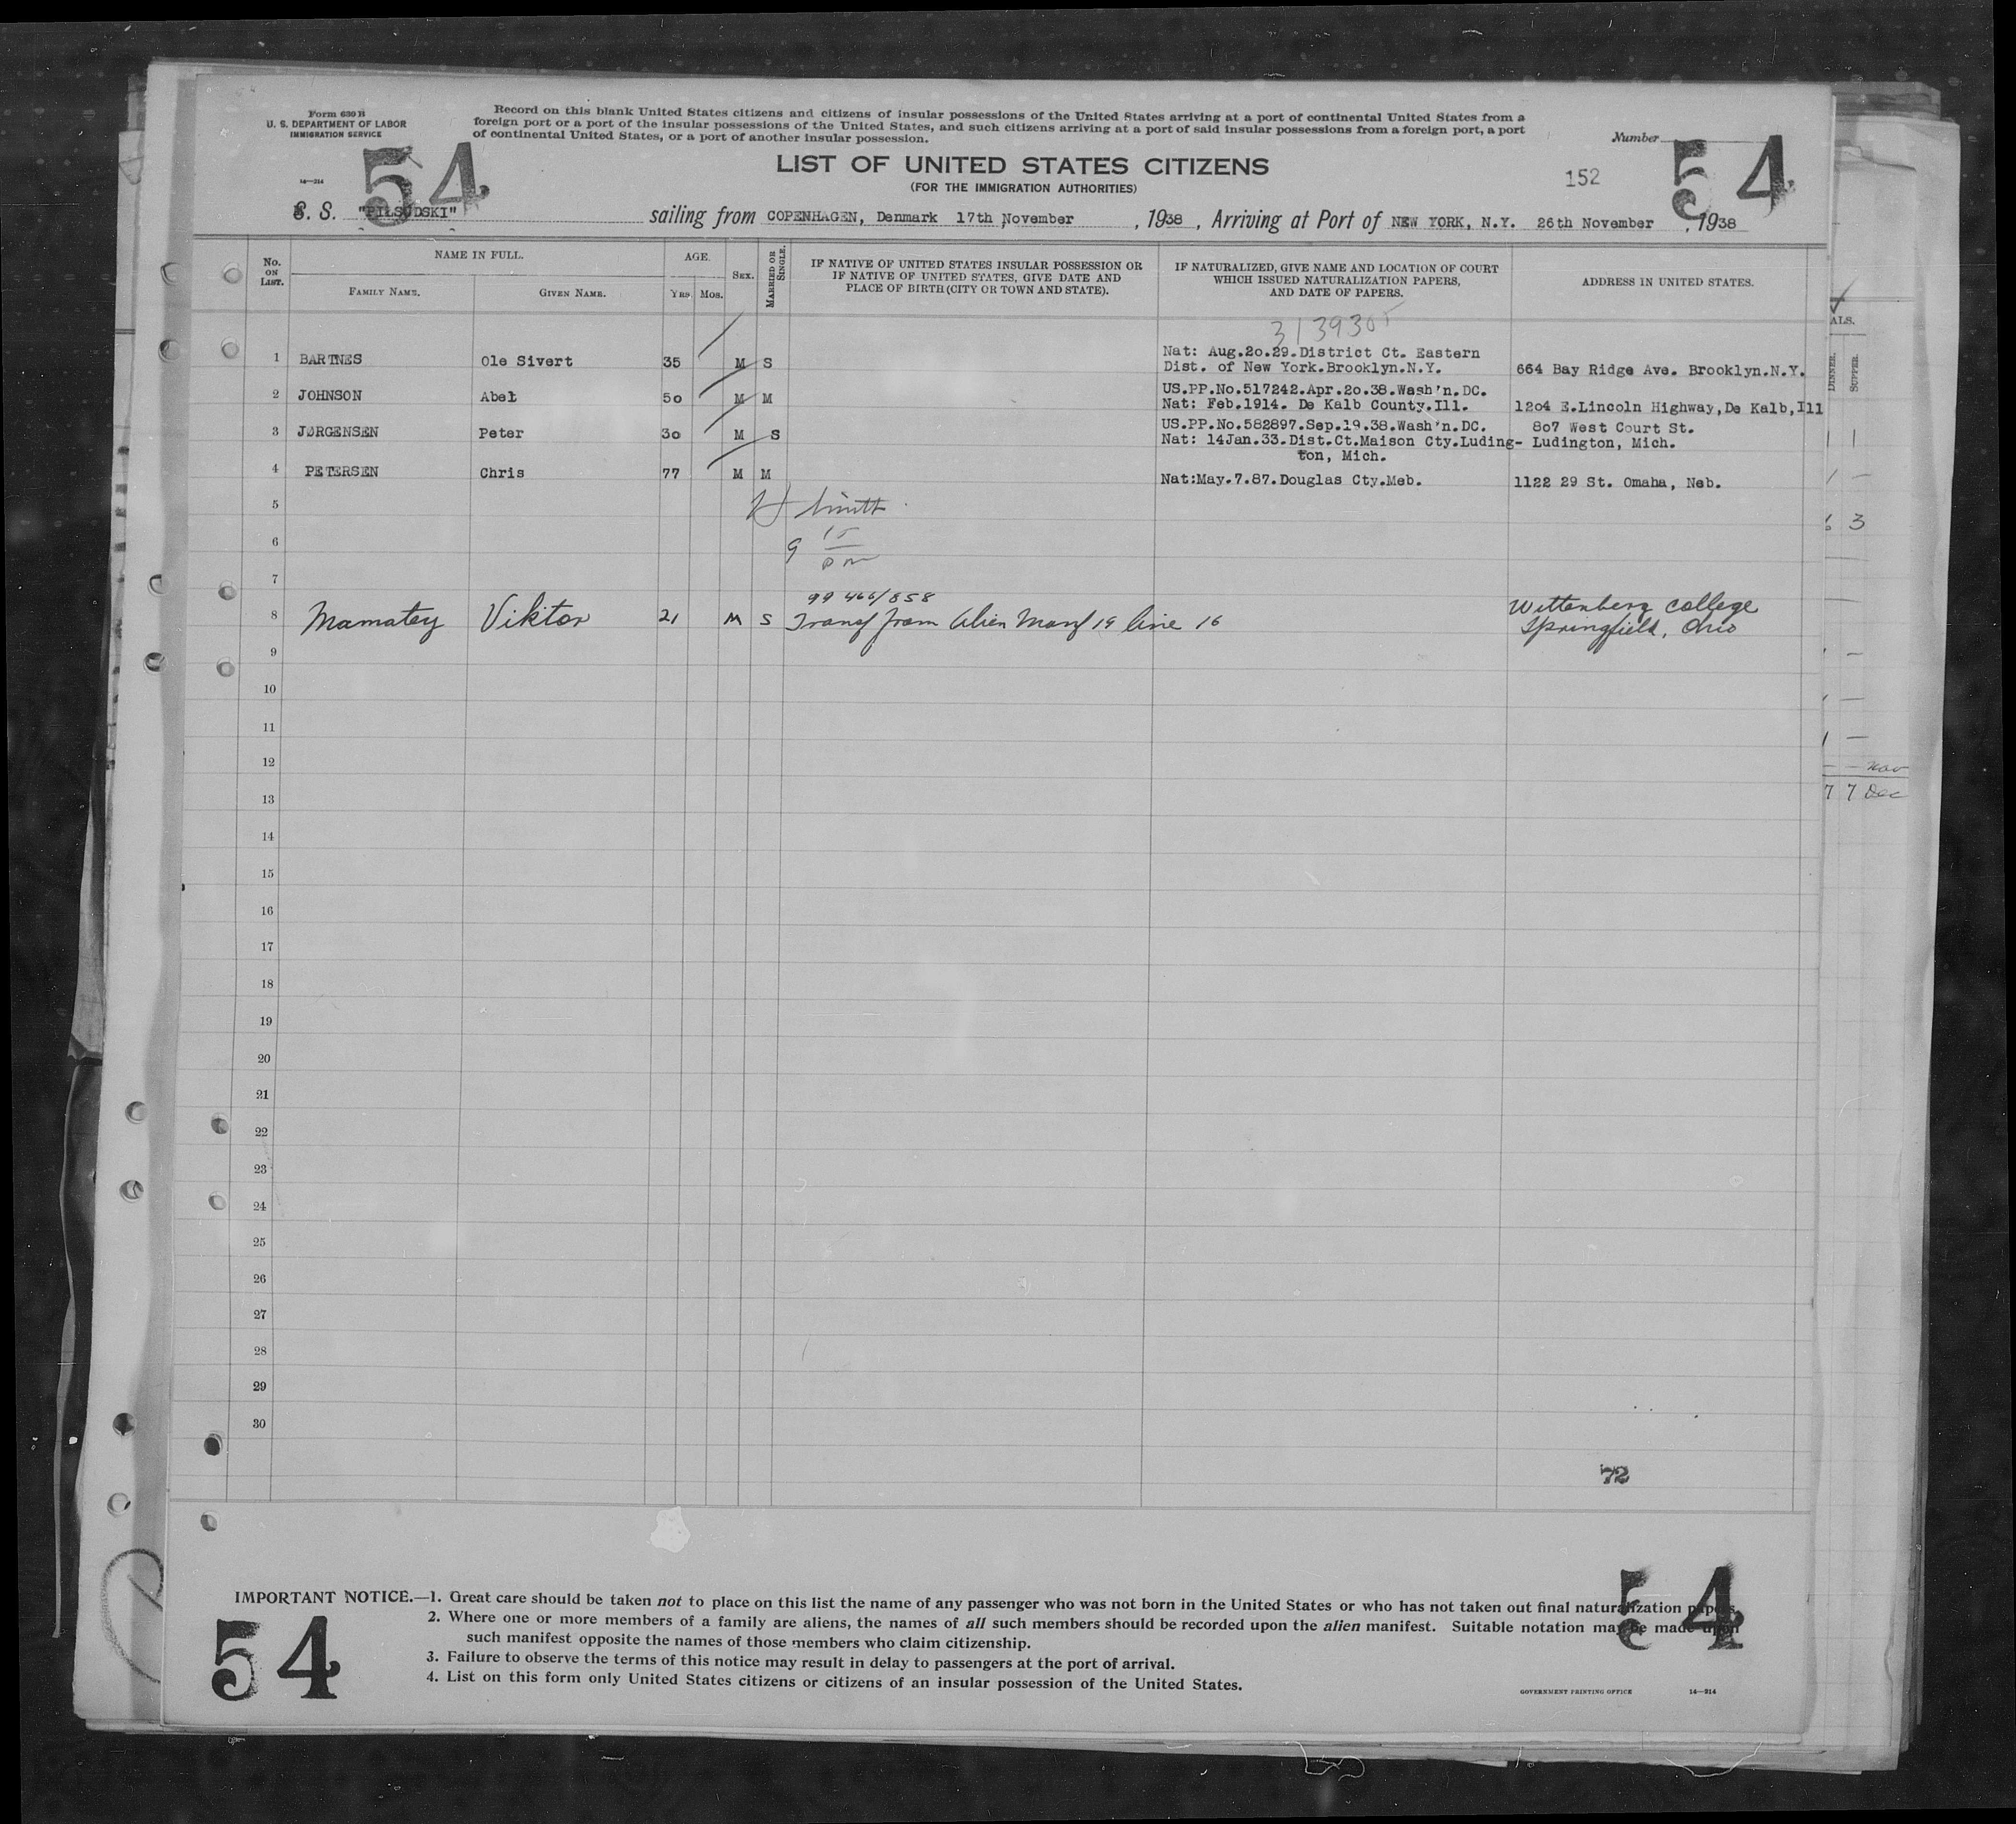 Form 630 B
U. S. DEPARTMENT OF LABOR
IMMIGRATION SERVICE
Record on this blank United States citizens and citizens of insular possessions of the United States arriving at a port of continental United States from a
foreign port or a port of the insular possessions of the United States, and such citizens arriving at a port of said insular possessions from a foreign port, a port
of continental United States, or a port of another insular possession.
Number
54
54
14—214
LIST OF UNITED STATES CITIZENS
(FOR THE IMMIGRATION AUTHORITIES)
152
S. S. "PIŁSUDSKI" sailing from COPENHAGEN, Denmark 17th November, 1938, Arriving at Port of NEW YORK, N.Y. 26th November, 1938
No. ON LIST.
NAME IN FULL.
FAMILY NAME.
GIVEN NAME.
AGE.
YRS. MOS.
SEX.
MARRIED OR SINGLE.
IF NATIVE OF UNITED STATES INSULAR POSSESSION OR
IF NATIVE OF UNITED STATES, GIVE DATE AND
PLACE OF BIRTH (CITY OR TOWN AND STATE).
IF NATURALIZED, GIVE NAME AND LOCATION OF COURT
WHICH ISSUED NATURALIZATION PAPERS,
AND DATE OF PAPERS.
ADDRESS IN UNITED STATES.
ALS.
DINNER.
SUPPER.
3139305
1 BARTNES Ole Sivert 35 M S Nat: Aug.20.29.District Ct. Eastern
Dist. of New York.Brooklyn.N.Y. 664 Bay Ridge Ave. Brooklyn.N.Y.
2 JOHNSON Abel 50 M M US.PP.No.517242.Apr.20.38.Wash'n.DC.
Nat: Feb.1914. De Kalb County.Ill. 1204 E.Lincoln Highway,De Kalb,Ill
3 JØRGENSEN Peter 30 M S US.PP.No.582897.Sep.19.38.Wash'n.DC. 807 West Court St.
Nat: 14Jan.33.Dist.Ct.Maison Cty.Luding- Ludington, Mich.
ton, Mich.
4 PETERSEN Chris 77 M M Nat:May.7.87.Douglas Cty.Meb. 1122 29 St. Omaha, Neb.
5
6
9 15
pm
7
99 466/858
8 Mamatey Viktor 21 M S Transf from Alien Manf 19 line 16 Wittenberg College
Springfield, Ohio
9
10
11
12
Nov
13
7 7 Dec
14
15
16
17
18
19
20
21
22
23
24
25
26
27
28
29
30
72
IMPORTANT NOTICE.—1. Great care should be taken not to place on this list the name of any passenger who was not born in the United States or who has not taken out final naturalization papers.
2. Where one or more members of a family are aliens, the names of all such members should be recorded upon the alien manifest. Suitable notation may be made upon
such manifest opposite the names of those members who claim citizenship.
3. Failure to observe the terms of this notice may result in delay to passengers at the port of arrival.
4. List on this form only United States citizens or citizens of an insular possession of the United States.
54
54
GOVERNMENT PRINTING OFFICE 14—214